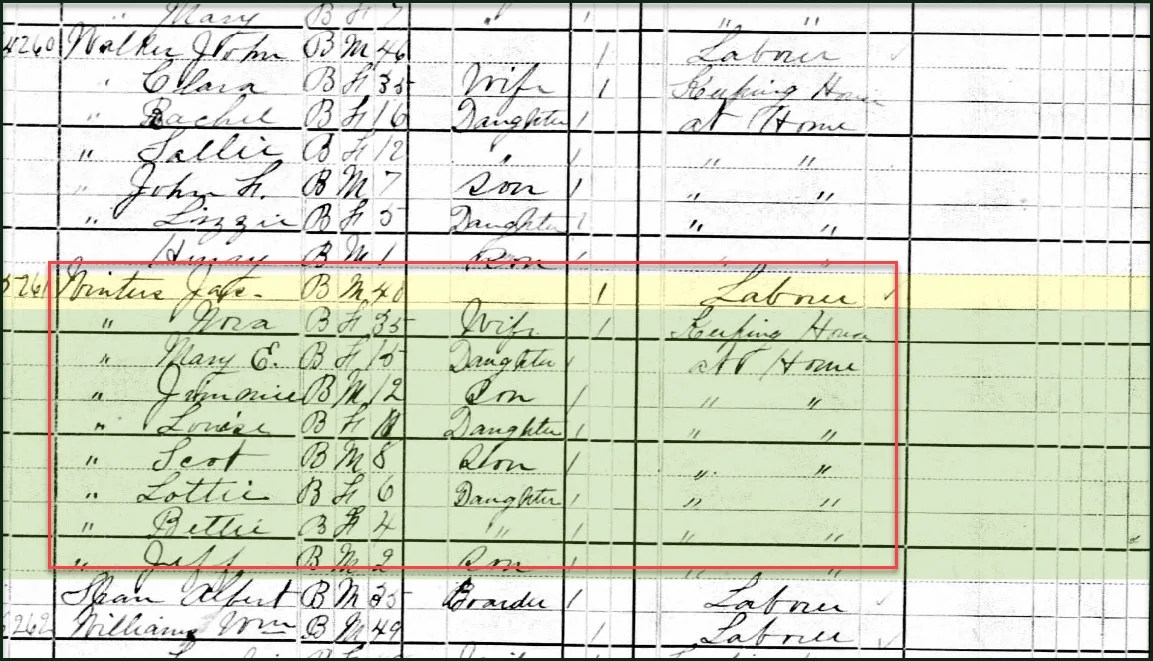 " Mary B F 7 " / " "
4260 Walker John B M 46 / Labourer
" Clara B F 35 Wife / Keeping House
" Rachel B F 16 Daughter / at Home
" Sallie B F 12 " / " "
" John H. B M 7 Son / " "
" Lizzie B F 5 Daughter / " "
Henry B M 1 Son / " "
5261 Winters Jas. B M 40 / Labourer
" Nora B F 35 Wife / Keeping House
" Mary E. B F 15 Daughter / at Home
" Jimmie B M 12 Son / " "
" Louise B F Daughter / " "
" Scot B M 8 Son / " "
" Lottie B F 6 Daughter / " "
" Bettie B F 4 " / " "
" Jeff B M 2 Son " "
Albert B M 35 Boarder / Labourer
262 Williams Wm B M 49 / Labourer